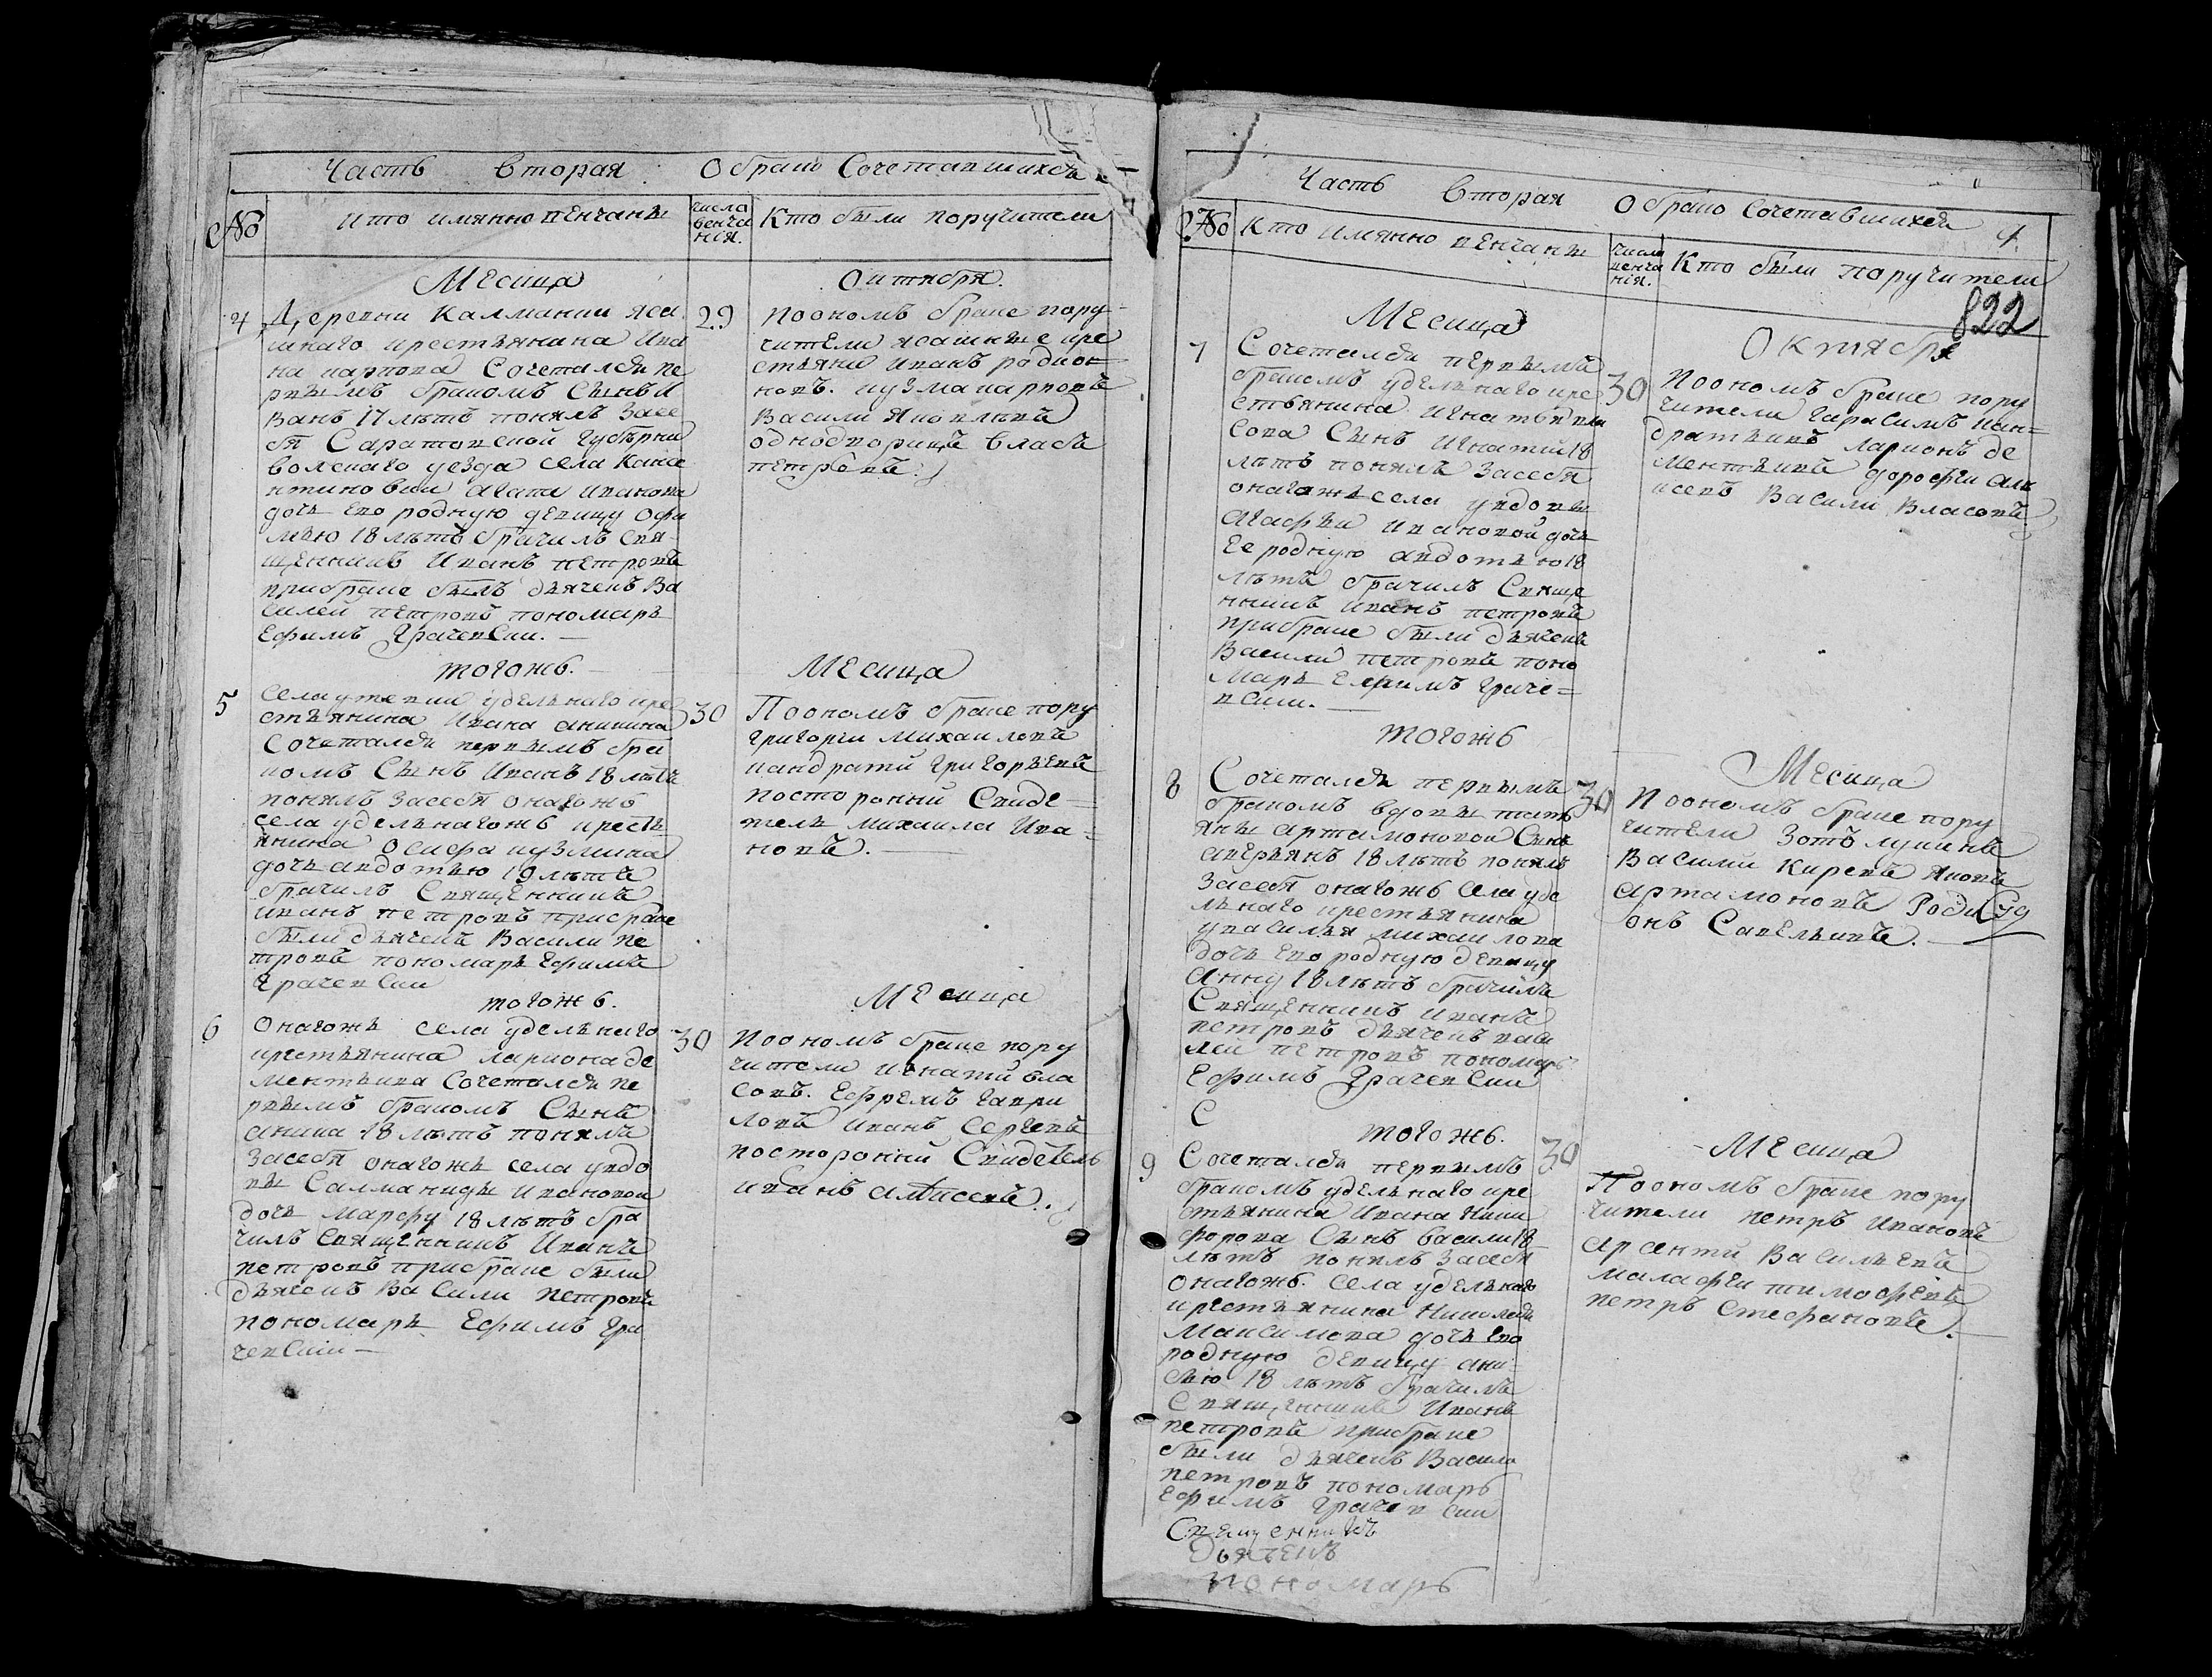 Часть вторая О брако Сочетавшихся
№
Кто имянно венчаны
числа
венча
нiя.
Кто были поручители
Месяца
Октября.
4
Деревни Калмании яса
шнаго крестьянина Ива
на карпова Сочетался пе
рвымъ бракомъ Сынъ И
ванъ 17 лѣтъ понялъ засе
бя Саратовской губѣрни
волскаго уезда села
дочь ево родную девицу Офи
мью 18 лѣтъ брачилъ Свя
щенникъ Иванъ петровъ
прибраке былъ дьячекъ Ва
силей петровъ пономарь
Ефимъ Грачевски. —
29
Поономъ браке пору
чители ясашные кре
стьяни иванъ родион
новъ. кузма карповъ
Васили Яковлевъ
однодворицъ власъ
петровъ.
тогожъ.
Месяца
5
Села удельнаго кре
стьянина Ивана аникина
Сочетался первымъ бра
комъ Сынъ Иванъ 18 лѣтъ
понялъ засебя онагожъ
села удельнагожъ кресть
янина осифа кузмина
дочь авдотью 19 лѣтъ
брачилъ Священникъ
иванъ петровъ прибраке
были дьячекъ Васили пе
тровъ пономарь Ефимъ
Грачевски
30
Поономъ браке пору
григорги Михаиловъ
кандратий григорьевъ
посторонни Свиде-
тель михаила Ива-
новъ.
тогожъ.
Месяца
6
Онагожъ села удельнаго
крестьянина лариона де
ментьива Сочетался пе
рвымъ бракомъ Сынъ
аника 18 лѣтъ понялъ
засебя онагожъ села удо
вы Салманиды ивановой
дочь марфу 18 лѣтъ бра
чилъ Священникъ Иванъ
петровъ прибраке были
дьячекъ Васили петровъ
пономарь Ефимъ Гра
чевски —
30
Поономъ браке пору
чители игнатий вла
совъ. Ефремъ гаври
ловъ иванъ сергевъ
посторонни Свидетель
иванъ алѣксевъ.
Часть вторая О брако Сочетавшихся 4.
№
Кто имянно венчаны
числа
венча
нiя.
Кто были поручители
822
Месяца
Октября
7
Сочетался первымъ
бракомъ удельнаго кре
стьянина игнатья вла
сова Сынъ игнатий 18
лѣтъ понялъ засебя
онагожъ села удовы
агафьи ивановой дочь
Ее родную авдотью 18
лѣтъ брачилъ Свяще
нникъ иванъ петровъ
прибраке были дьячекъ
Васили петровъ поно
марь Ефимъ Граче-
вски. —
30
Поономъ браке пору
чители гарасимъ кан-
дратьивъ ларионъ де
ментьивъ дорофеи алек
сеевъ Васили Власовъ
тогожъ
Месяца
8
Сочетался первымъ
бракомъ вдовы тать
яны артамоновой Сынъ
аверьянъ 18 лѣтъ понялъ
засебя онагожъ села уде
льнаго крестьянина
михаилова
дочь ево родную девицу
Анну 18 лѣтъ брачилъ
Священникъ иванъ
петровъ дьячекъ васи
леи петровъ пономарь
Ефимъ Грачевски
С
30
Поономъ браке пору
чители Зотъ лукинъ
Василий Киревъ Яковъ
артамоновъ Роди
онъ Савельивъ.
тогожъ.
Месяца
9
Сочетался первымъ
бракомъ удельнаго кре
стьянина Ивана Ники
форова Сынъ васили 18
лѣтъ понялъ засебя
онагожъ. села удельнаго
крестьянина Николая
Максимова дочь ево
родную девицу ани-
сью 18 лѣтъ брачилъ
Священникъ Иванъ
петровъ прибраке
были дьячекъ Васили
петровъ пономарь
Ефимъ Грачевски
30
Поономъ браке пору
чители петръ ивановъ
арсентий Васильевъ
малафеи тимофевъ
петръ Стефановъ.
Священникъ
Дьячекъ
пономарь